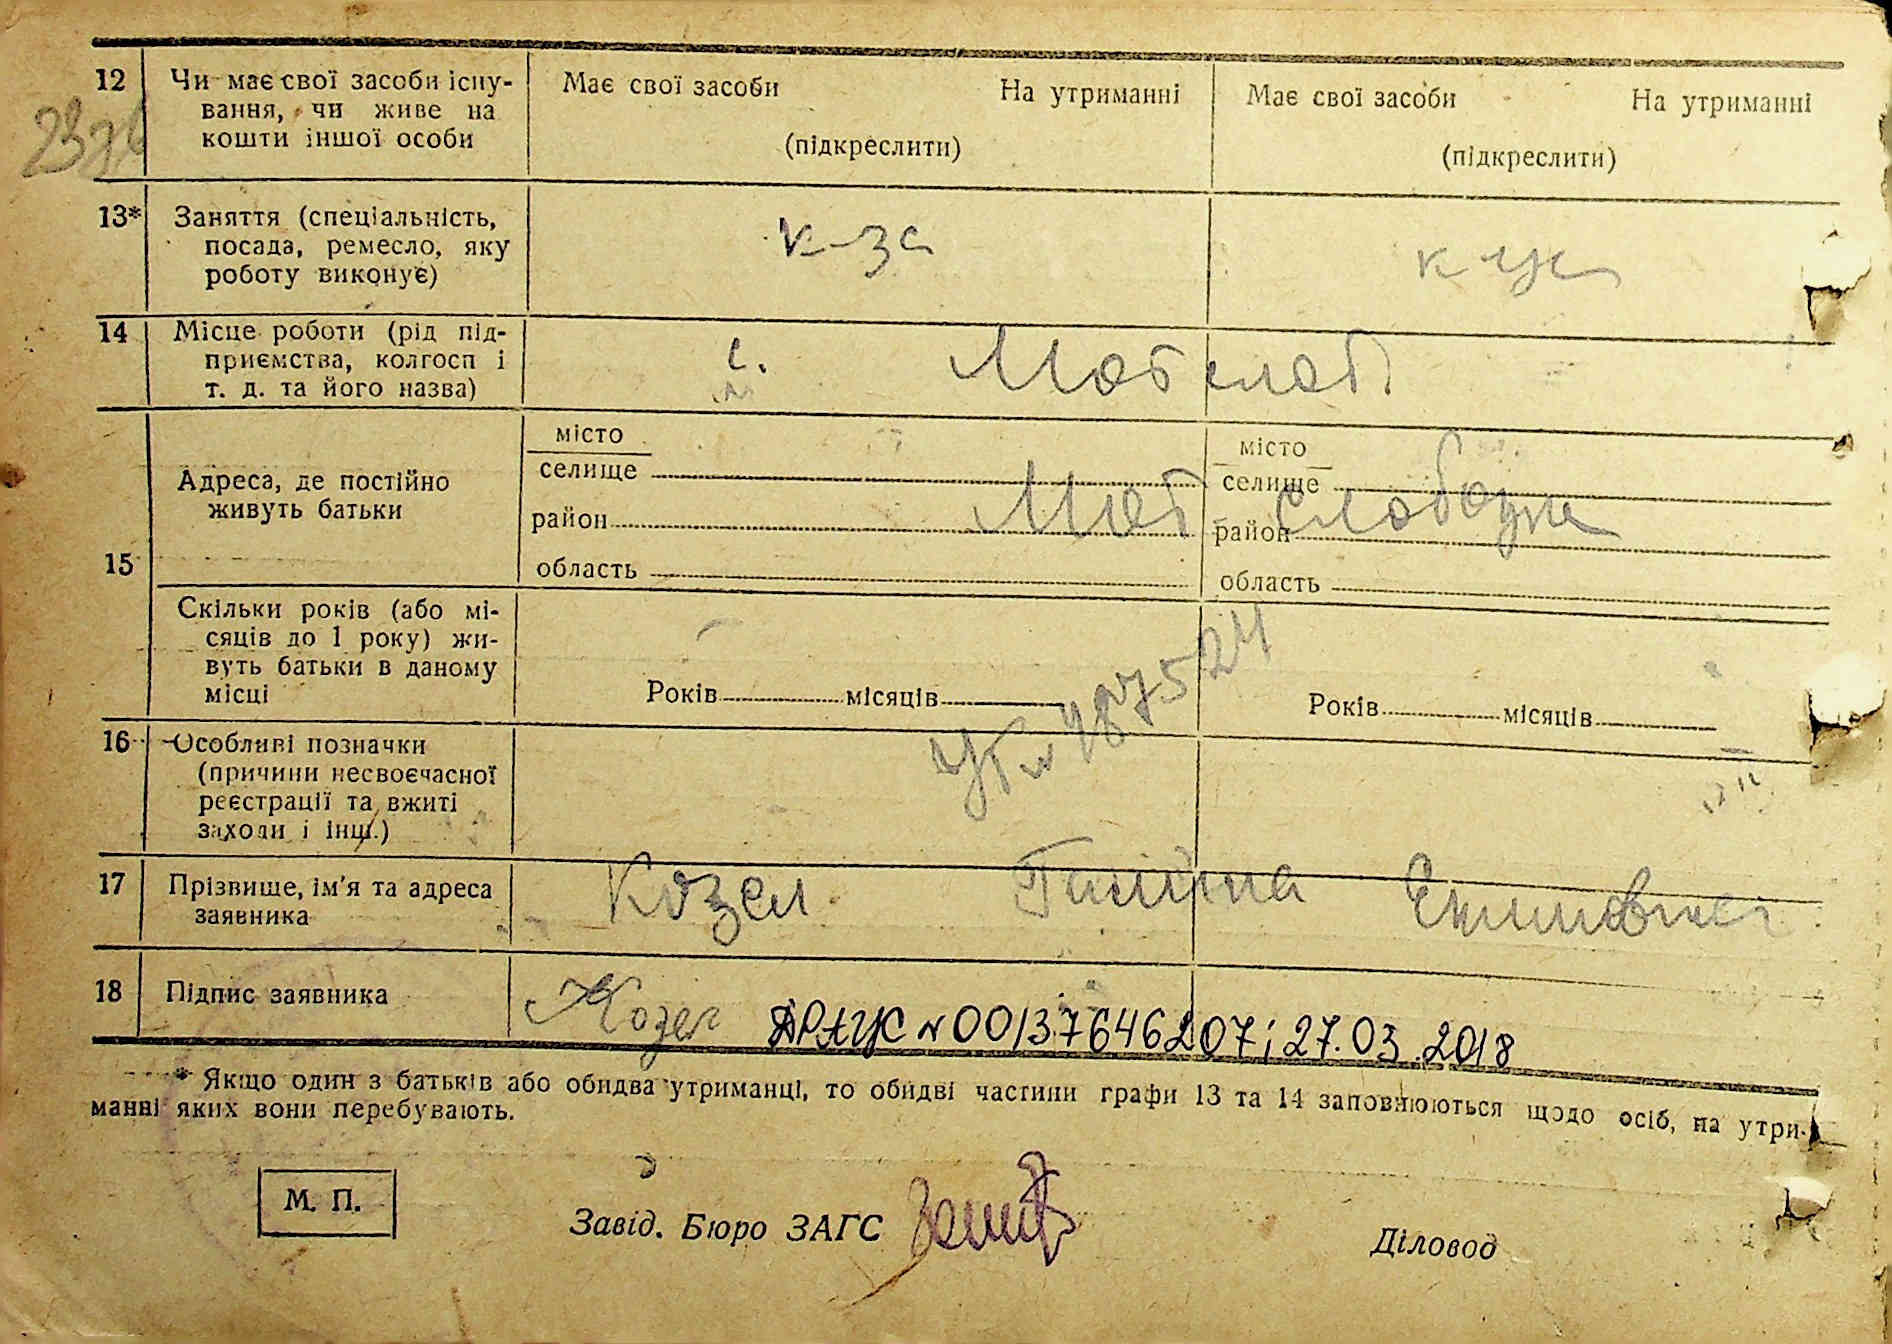 12 Чи має свої засоби існу-
вання, чи живе на
кошти іншої особи
Має свої засоби На утриманні
(підкреслити)
Має свої засоби На утриманні
(підкреслити)
13* Заняття (спеціальність,
посада, ремесло, яку
роботу виконує)
к-за
14 Місце роботи (рід під-
приємства, колгосп і
т. д. та його назва)
с.
15 Адреса, де постійно
живуть батьки
місто
селище
район
область
місто
селище
район
область
Слободка
Скільки років (або мі-
сяців до 1 року) жи-
вуть батьки в даному
місці
Років місяців
Років місяців
487524
16 Особливі позначки
(причини несвоєчасної
реєстрації та вжиті
заходи і інш.)
17 Прізвище, ім'я та адреса
заявника
Козел
18 Підпис заявника
Козел
ДРАЦС № 00137646207; 27.03.2018
* Якщо один з батьків або обидва утриманці, то обидві частини графи 13 та 14 заповнюються щодо осіб, на утри-
манні яких вони перебувають.
М. П.
Завід. Бюро ЗАГС
Діловод